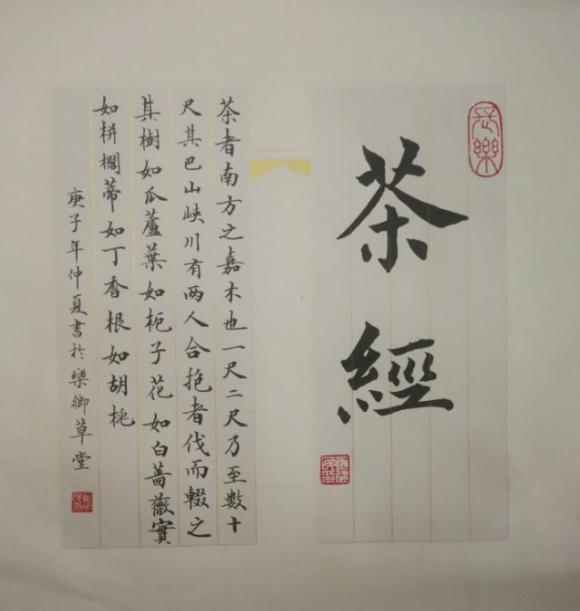 茶經
茶者南方之嘉木也一尺二尺乃至數十
尺其巴山峽川有两人合抱者伐而輟之
其樹如瓜蘆葉如栀子花如白薔薇實
如栟櫚蒂如丁香根如胡桃
庚子年仲夏書於樂鄉草堂